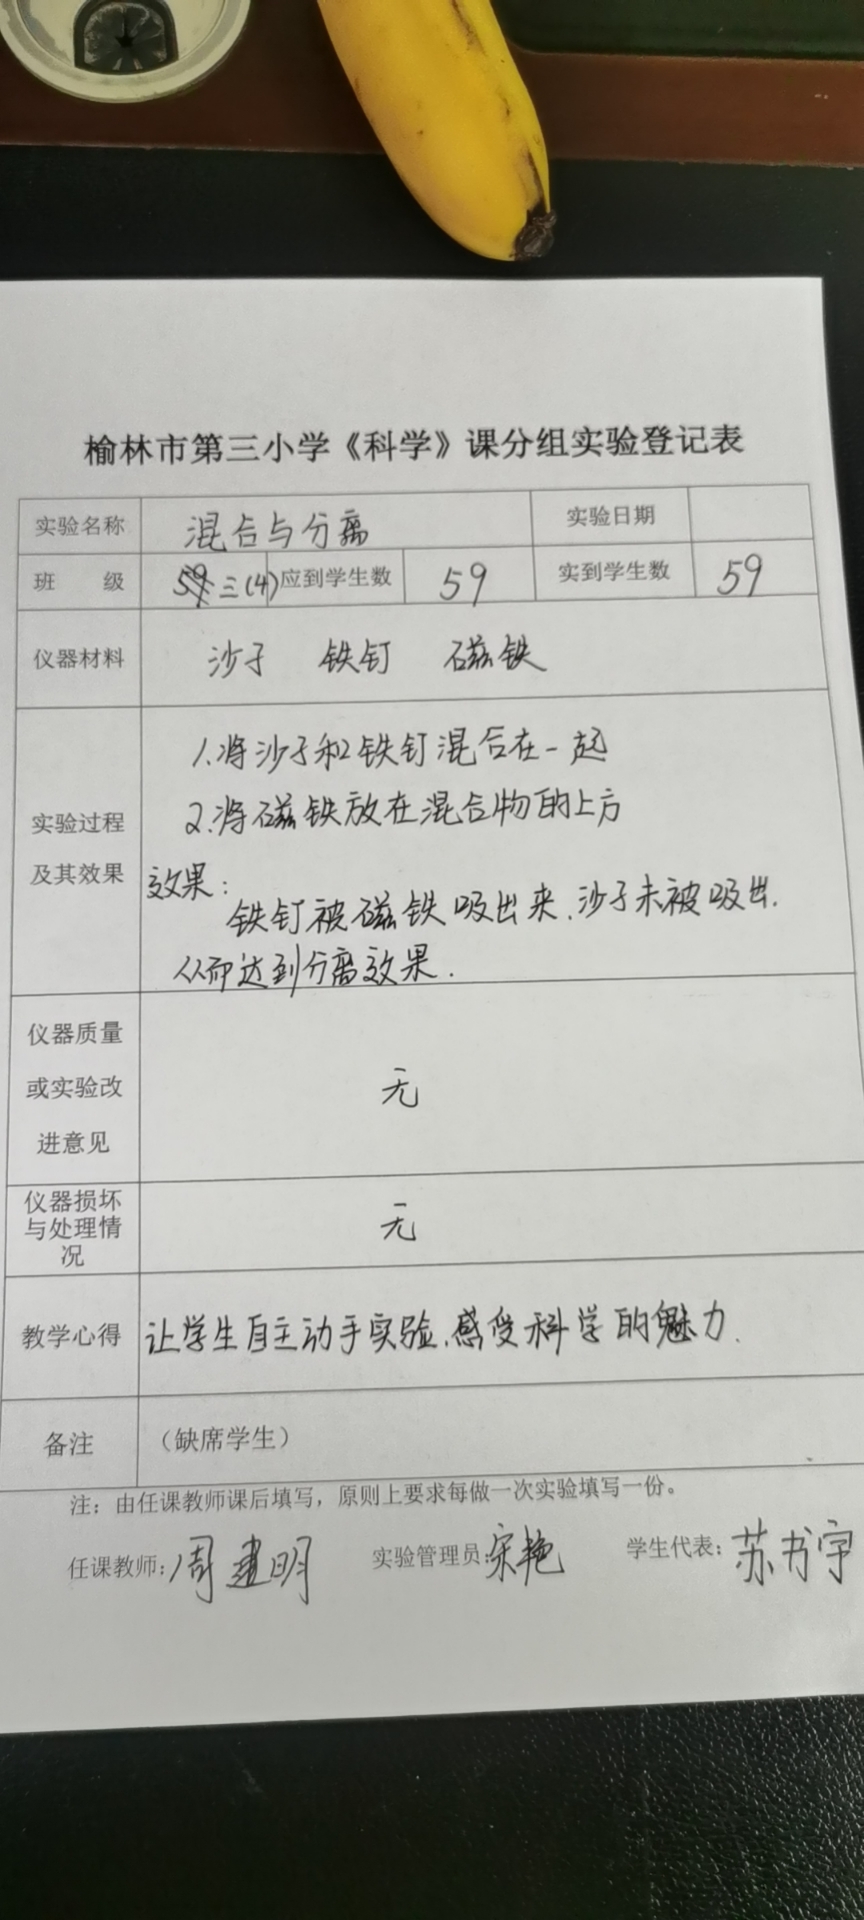 榆林市第三小学《科学》课分组实验登记表
实验名称 混合与分离 实验日期
班 级 三(4) 应到学生数 59 实到学生数 59
仪器材料 沙子 铁钉 磁铁
实验过程
及其效果
1.将沙子和铁钉混合在一起
2.将磁铁放在混合物的上方
效果:
铁钉被磁铁吸出来,沙子未被吸出.
从而达到分离效果.
仪器质量
或实验改
进意见
无
仪器损坏
与处理情
况
无
教学心得 让学生自主动手实验,感受科学的魅力.
备注 (缺席学生)
注:由任课教师课后填写,原则上要求每做一次实验填写一份。
任课教师:周建明 实验管理员:宋艳 学生代表:苏书宇